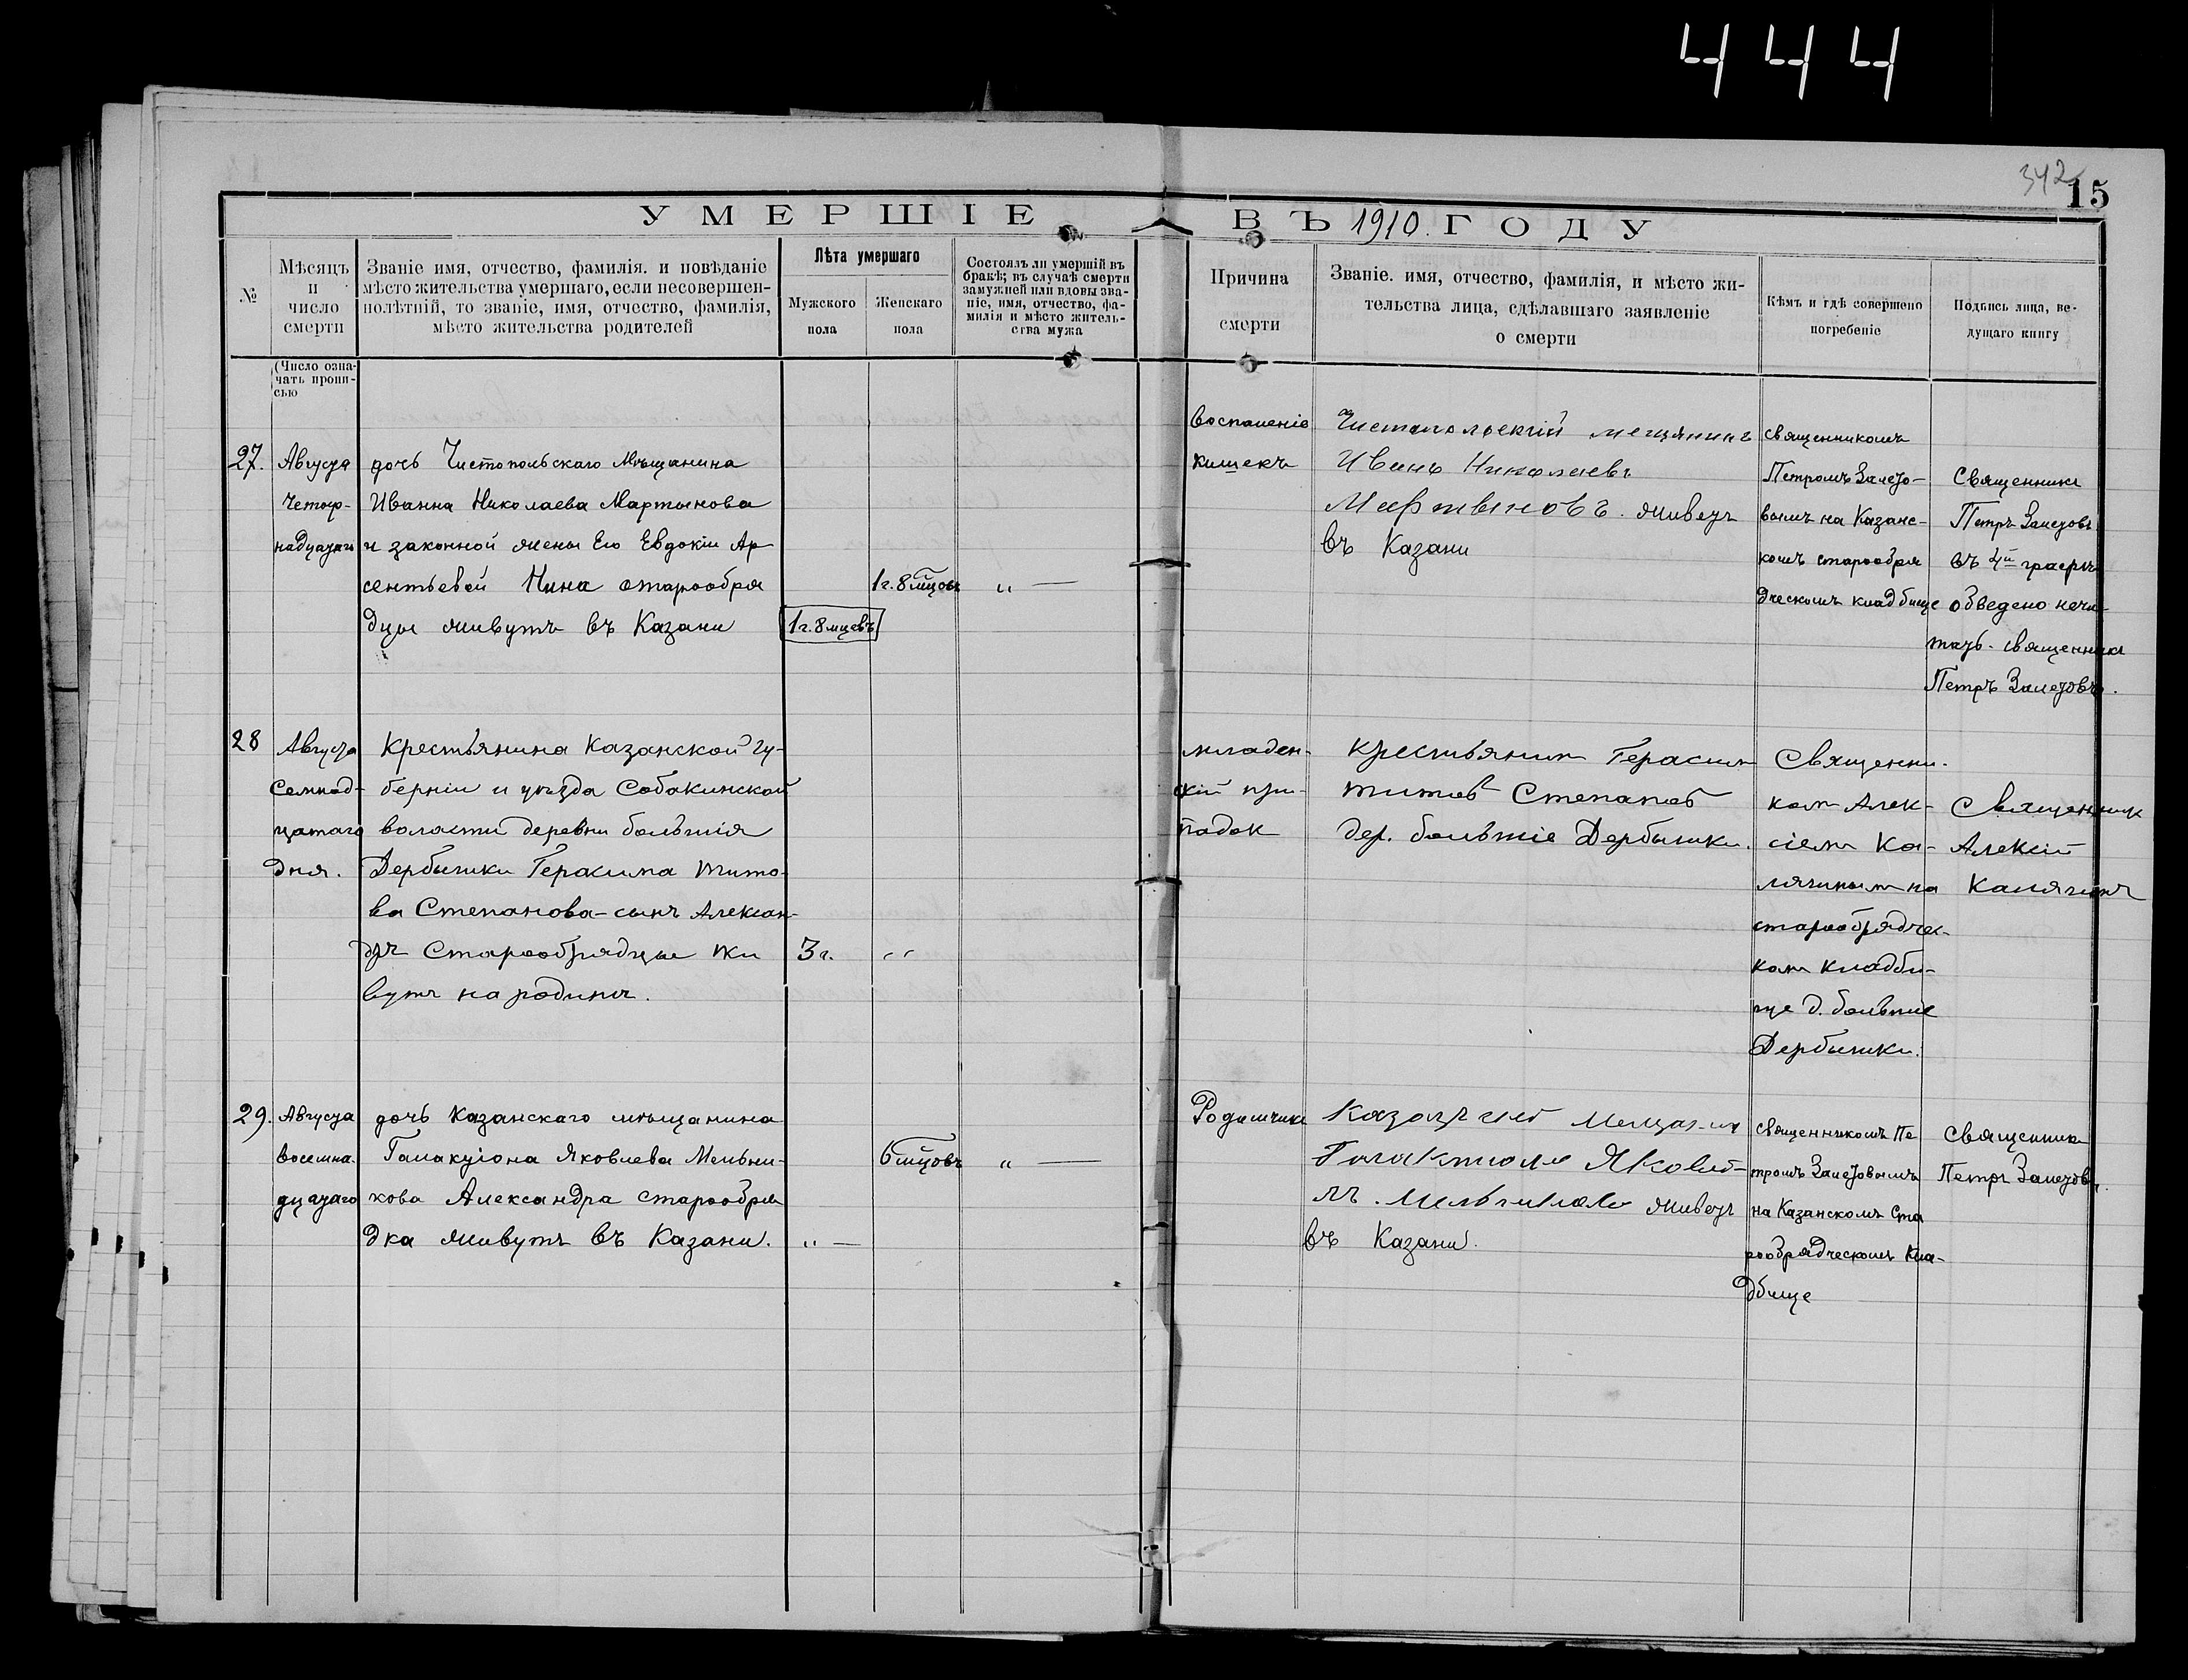 444
342
15
УМЕРШІЕ ВЪ 1910. ГОДУ
№
Мѣсяцъ
и
число
смерти
Званіе имя, отчество, фамилія. и повѣданіе
мѣсто жительства умершаго, если несовершен-
нолѣтній, то званіе, имя, отчество, фамилія,
мѣсто жительства родителей
Лѣта умершаго
Мужского
пола
Женскаго
пола
Состоялъ ли умершій въ
бракѣ; въ случаѣ смерти
замужней или вдовы зва-
ніе, имя, отчество, фа-
милія и мѣсто житель-
ства мужа
Причина
смерти
Званіе. имя, отчество, фамилія, и мѣсто жи-
тельства лица, сдѣлавшаго заявленіе
о смерти
Кѣмъ и гдѣ совершено
погребеніе
Подпись лица, ве-
дущаго книгу
(Число озна-
чать пропи-
сью
27.
Августа
четыр-
надцатаго
дочь Чистопольскаго Мѣщанина
Иванна Николаева Мартынова
и законной жены Его Евдокіи Ар
сентьевой Нина старообря
дцы живутъ въ Казани
1 г. 8 мцевъ
1 г. 8 мцовъ
„ —
Воспаленіе
кишекъ
Чистопольскій мещянинъ
Иванъ Николаевъ
Мартыновъ. живет
въ Казани
священникомъ
Петромъ Залето-
вымъ на Казанс-
комъ старообря
дческомъ кладбище
Священник
Петръ Залетовъ
въ 4й графѣ
обведено нечи-
тать. священник
Петръ Залетовъ.
28
Августа
Семнад-
цатаго
дня.
Крестьянина Казанской гу-
берніи и уѣзда Собакинской
волости деревни большія
Дербышки Герасима Тито-
ва Степанова – сынъ Алексан-
дръ Старообрядцы жи
вутъ на родинѣ.
3 г.
„
младен-
скій при-
падок
крестьянин Герасим
Титов Степанов
дер. большіе Дербышки.
Священни-
ком Алек-
сіем Ка-
лягиным на
старообрядчес-
ком кладби-
ще д. больше
Дербышки.
Священник
Алексій
Калягинъ
29.
Августа
восемна-
дцатаго
дочь Казанскаго мѣщанина
Галактіона Яковлева Мельни-
кова Александра старообря
дка живутъ въ Казани.
„ —
6 мцовъ
„ —
Родимчик
Мещанин
Галактион Яковлев-
живет
въ Казани.
священникомъ Пе
тромъ Залетовымъ
на Казанскомъ Ста
рообрядческомъ Кла-
дбище
Священник
Петръ Залетовъ.